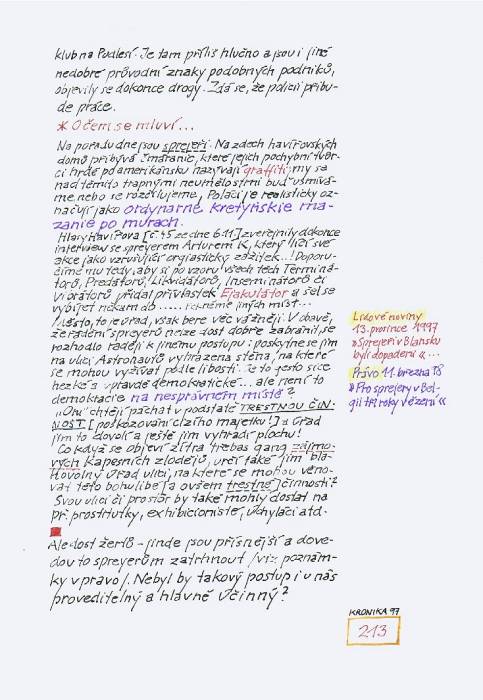 klub na Podlesí. Je tam příliš hlučno a jsou i jiné
nedobré průvodní znaky podobných podniků,
objevily se dokonce drogy. Zdá se, že policii přibu-
de práce.
* O čem se mluví...
Na pořadu dne jsou sprejeři. Na zdech havířovských
domů přibývá čmáranic, které jejich pochybní tvůr-
ci hrdě po amerikánsku nazývají graffiti; my se
nad těmito trapnými neumělostmi buď usmívá-
me, nebo se rozčilujeme. Poláci je realisticky oz-
načují jako ordynarne, kretyńskie ma-
zanie po murach.
Hlasy Havířova [č. 45 ze dne 6.11.] zveřejnily dokonce
interview se sprayerem Arturem K., který líčí své
akce jako vzrušující orgiastický zážitek...! Doporu-
číme mu tedy, aby si po vzoru všech těch Terminá-
torů, Predátorů, Likvidátorů, Inseminátorů či
Vibrátorů přidal přívlastek Ejakulátor a šel se
vybíjet někam do ..... řekněme jiných míst...
Město, to je úřad, však bere věc vážněji. V obavě,
že řádění sprejerů nelze dost dobře zabránit, se
rozhodlo raději k jinému postupu: poskytne se jim
na ulici Astronautů vyhrazená stěna, na které
se mohou vyžívat podle libosti. Je to gesto sice
hezké a vpravdě demokratické... ale není to
demokracie na nesprávném místě?
„Oni“ chtějí páchat v podstatě TRESTNOU ČIN-
NOST [poškozování cizího majetku!] a úřad
jim to dovolí a ještě jim vyhradí plochu!
Co když se objeví zítra třebas gang zájmo-
vých kapesních zlodějů, určí také jim bla-
hovolný úřad ulici, na které se mohou věno-
vat této bohulibé [a ovšem trestné] činnosti?
Svou ulici či prostor by také mohly dostat na
př. prostitutky, exhibicionisté, úchyláci atd.
Ale dost žertů – jinde jsou přísnější a dove-
dou to sprayerům zatrhnout /viz poznám-
ky vpravo/. Nebyl by takový postup i u nás
proveditelný a hlavně účinný?
Lidové noviny
13. prosince 1997
»Sprejeři v Blansku
byli dopadeni«...
Právo 11. března 98
»Pro sprejery v Bel-
gii tři roky vězení«
KRONIKA 97
213